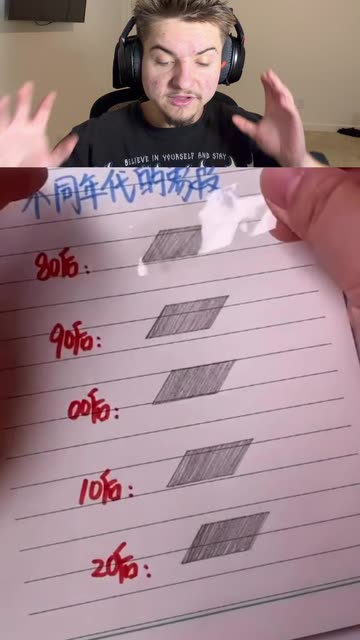 BELIEVE IN YOURSELF AND STAY
不同年代的
80后:
90后:
00后:
10后:
20后: